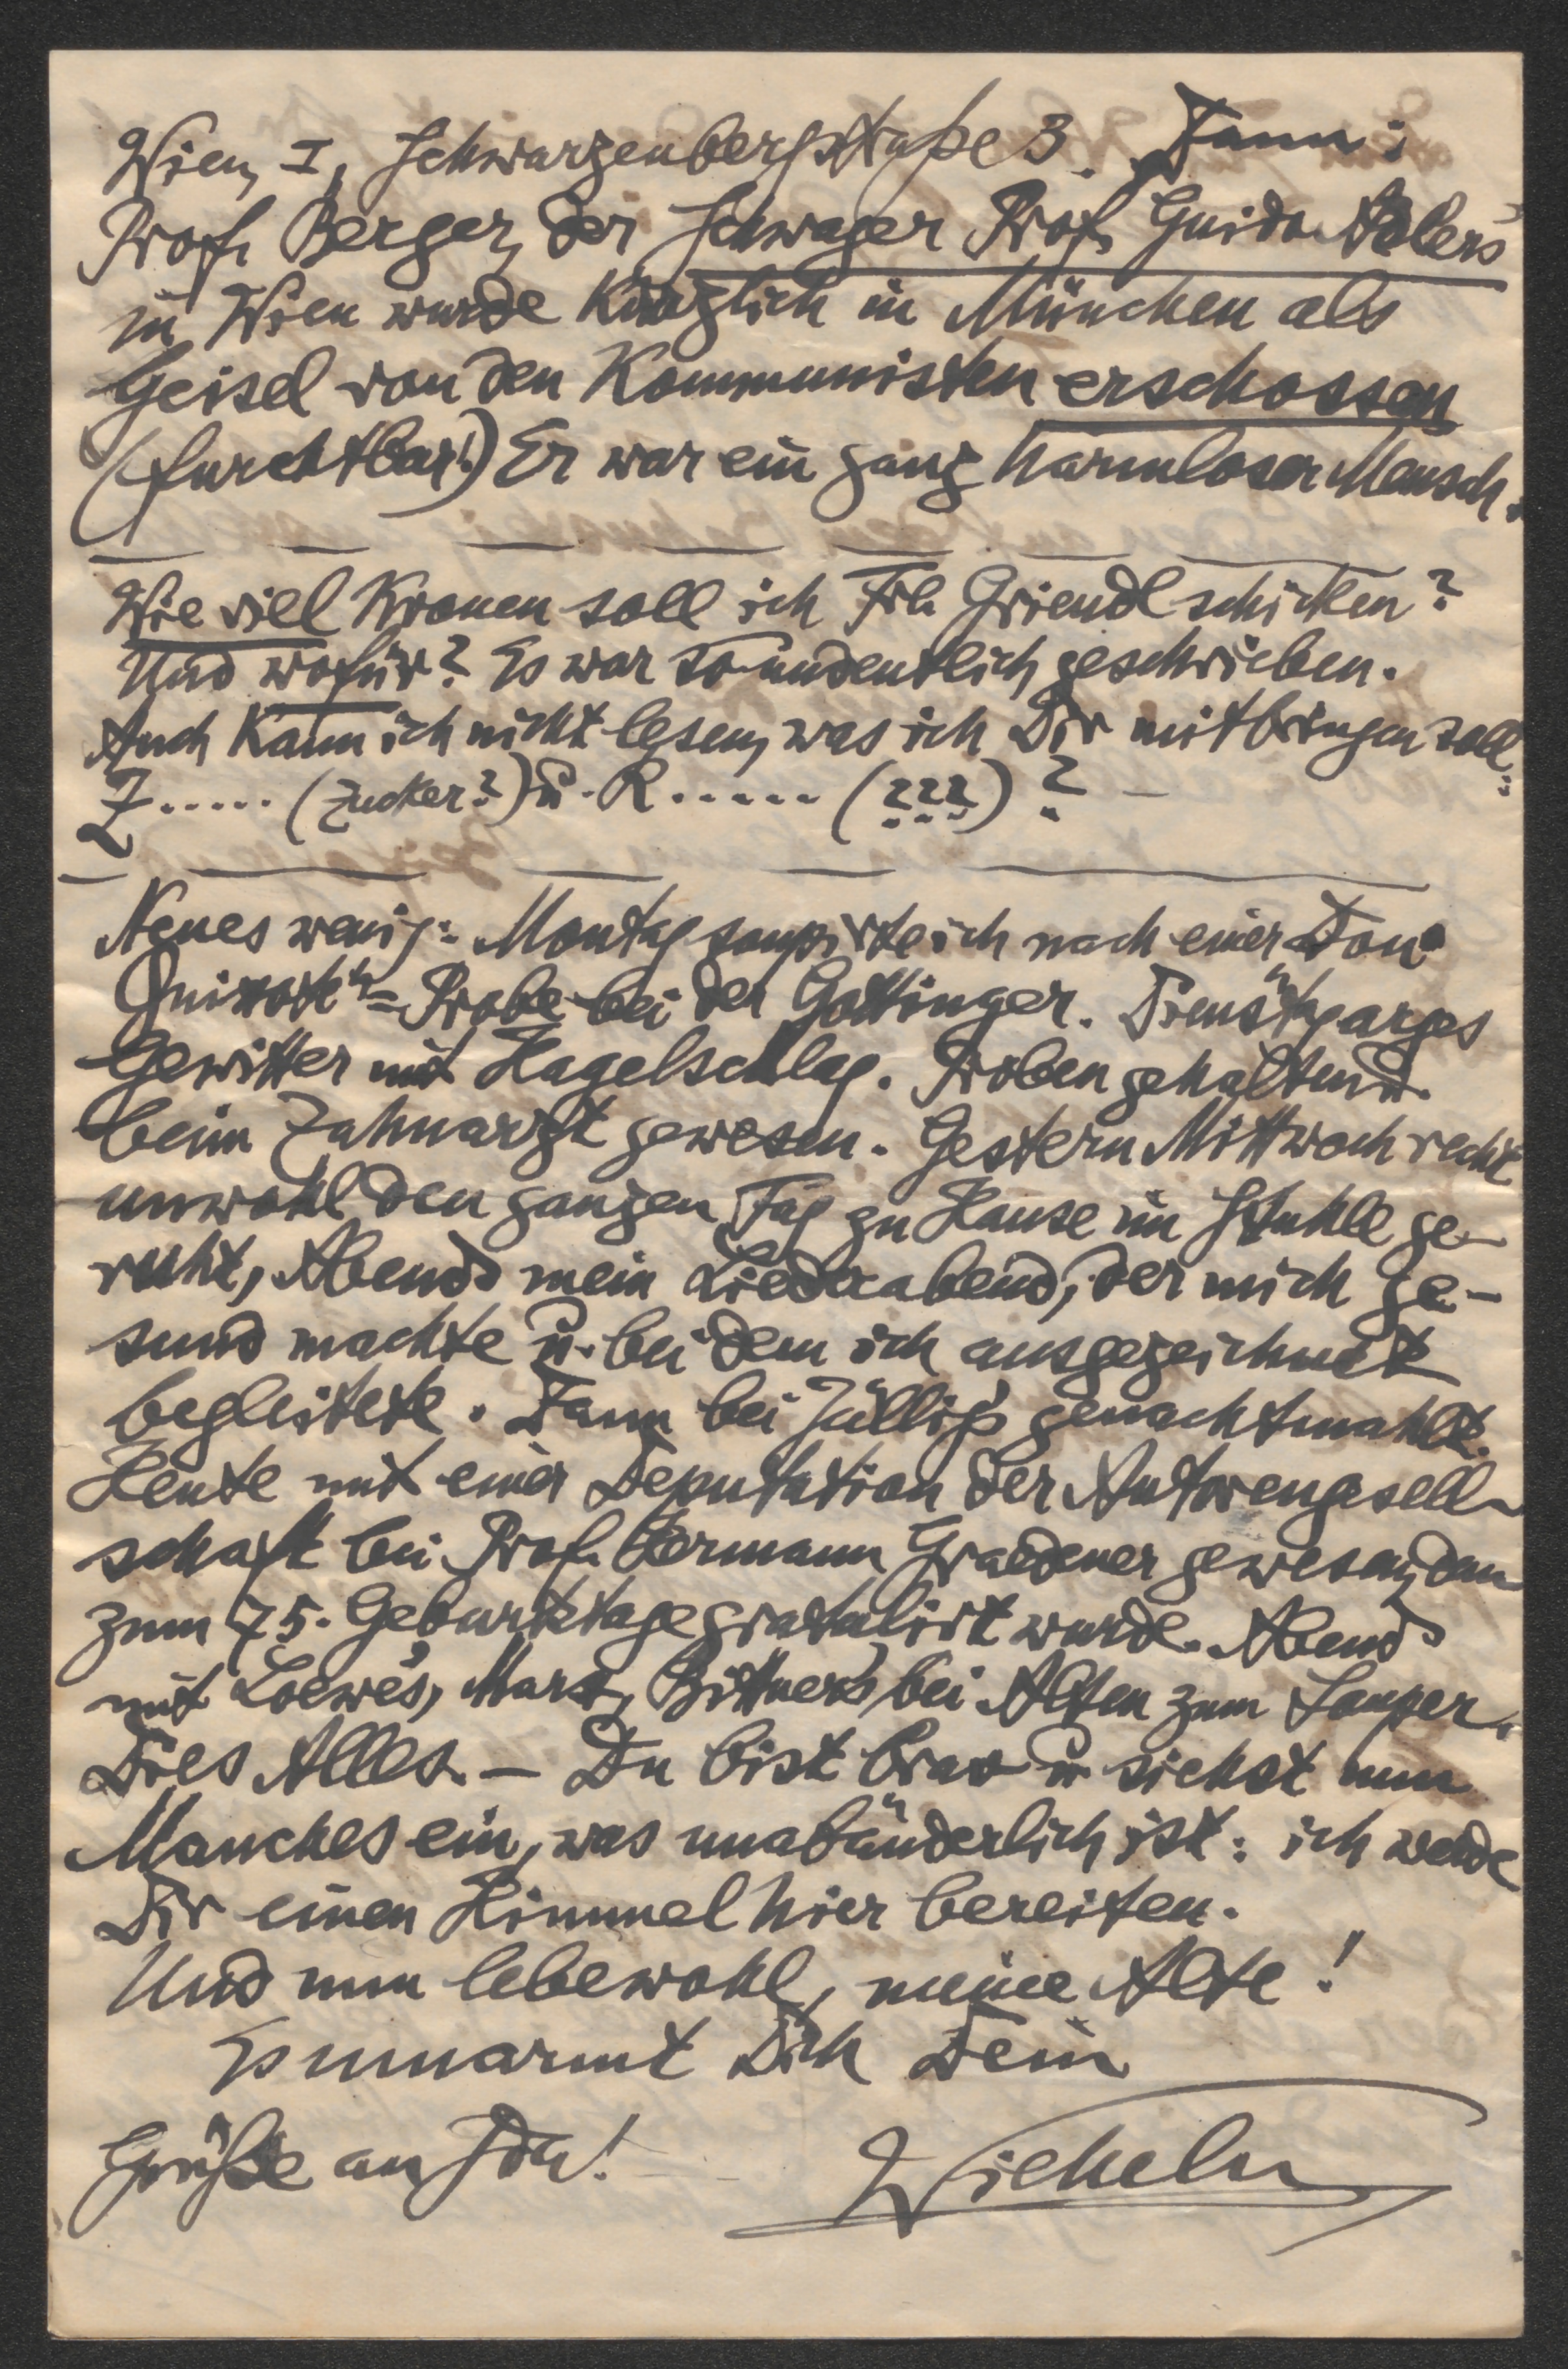 Wien, I, Schwarzenbergstraße 3. Dann:
Prof. Berger, der Schwager Prof. Guido Adlers
in Wien wurde kürzlich in München als
Geisel von den Kommunisten erschossen
(furchtbar!) Er war ein ganz harmloser Mensch.
Wie viel Kronen soll ich Frl. Griendl schicken?
Und wofür? Es war so undeutlich geschrieben.
Auch kann ich nicht lesen, was ich Dir mitbringen soll:
Z..... (Zucker?) u. R..... (???) ?
Neues wenig: Montag soupirte ich nach einer Don
Quixote"-Probe bei der Gottinger. Dienstag arges
Gewitter mit Hagelschlag. Proben gehalten u.
beim Zahnarzt gewesen. Gestern Mittwoch recht
unwohl den ganzen Tag zu Hause im Stuhle ge-
ruht, Abends mein Liederabend, der mich ge-
sund machte u. bei dem ich ausgezeichnet
begleitete. Dann bei Jüllig's genachtmahlt.
Heute mit einer Deputation der Autorengesell-
schaft bei Prof. Hermann Graedener gewesen, dem
zum 75. Geburtstage gratulirt wurde. Abends
mit Loewe's, Marx, Bittner's bei Alten zum Souper.
Dies Alles. – Du bist brav u. siehst nun
Manches ein, was unabänderlich ist: ich werde
Dir einen Himmel hier bereiten.
Und nun lebewohl, meine Alte!
Es umarmt Dich Dein
Grüße an Ida!
Wilhelm